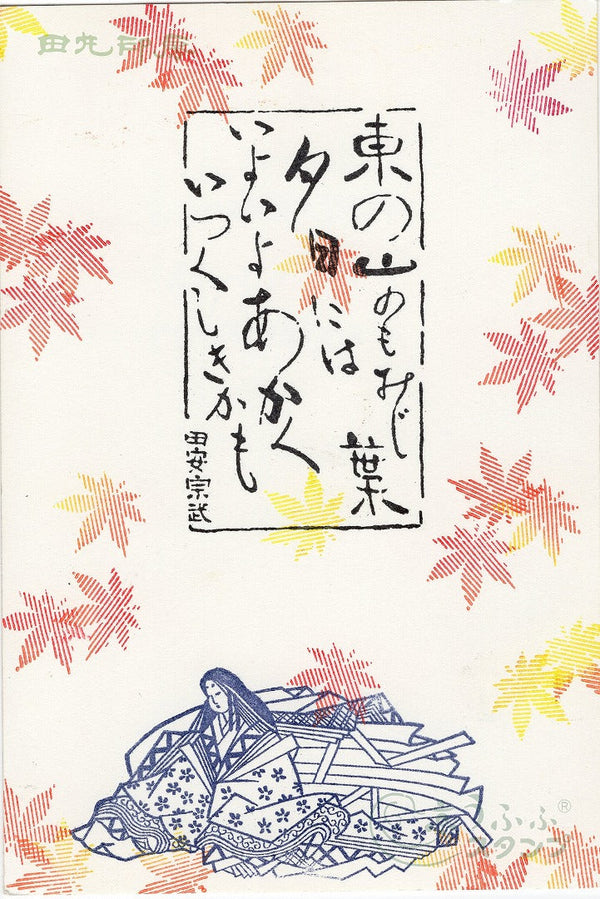 東の山のもみじ葉
夕日には
いよいよあかく
いつくしきかも
田安宗武
ふふ®
スタンプ